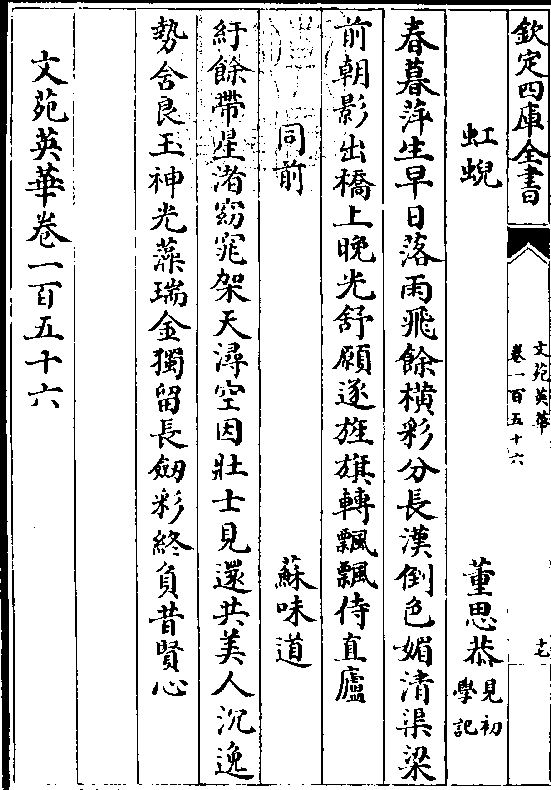 欽定四庫全書
文苑英華
卷一百五十六
十七
虹蜺 董思恭 見初學記
春暮萍生早日落雨飛餘橫彩分長漢倒色媚清渠梁
前朝影出橋上晚光舒願逐旌旗轉飄飄侍直廬
同前 蘇味道
紆餘帶星渚窈窕架天潯空因壯士見還共美人沉逸
勢含良玉神光藻瑞金獨留長劔彩終負昔賢心
文苑英華卷一百五十六